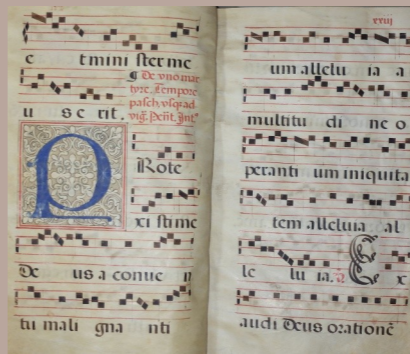 e t mini ster me
¶ De vno mar
tyre. Tempore
pasch. vsq; ad
u s e rit. vig. Pēt. Int.
P Rote
xi sti me
De us a conue n
tu mali gna nti
xxiij
um allelu ia a
multitu di ne o
peranti um iniquita
tem alleluia al
le lu ia. E x
audi Deus orationē